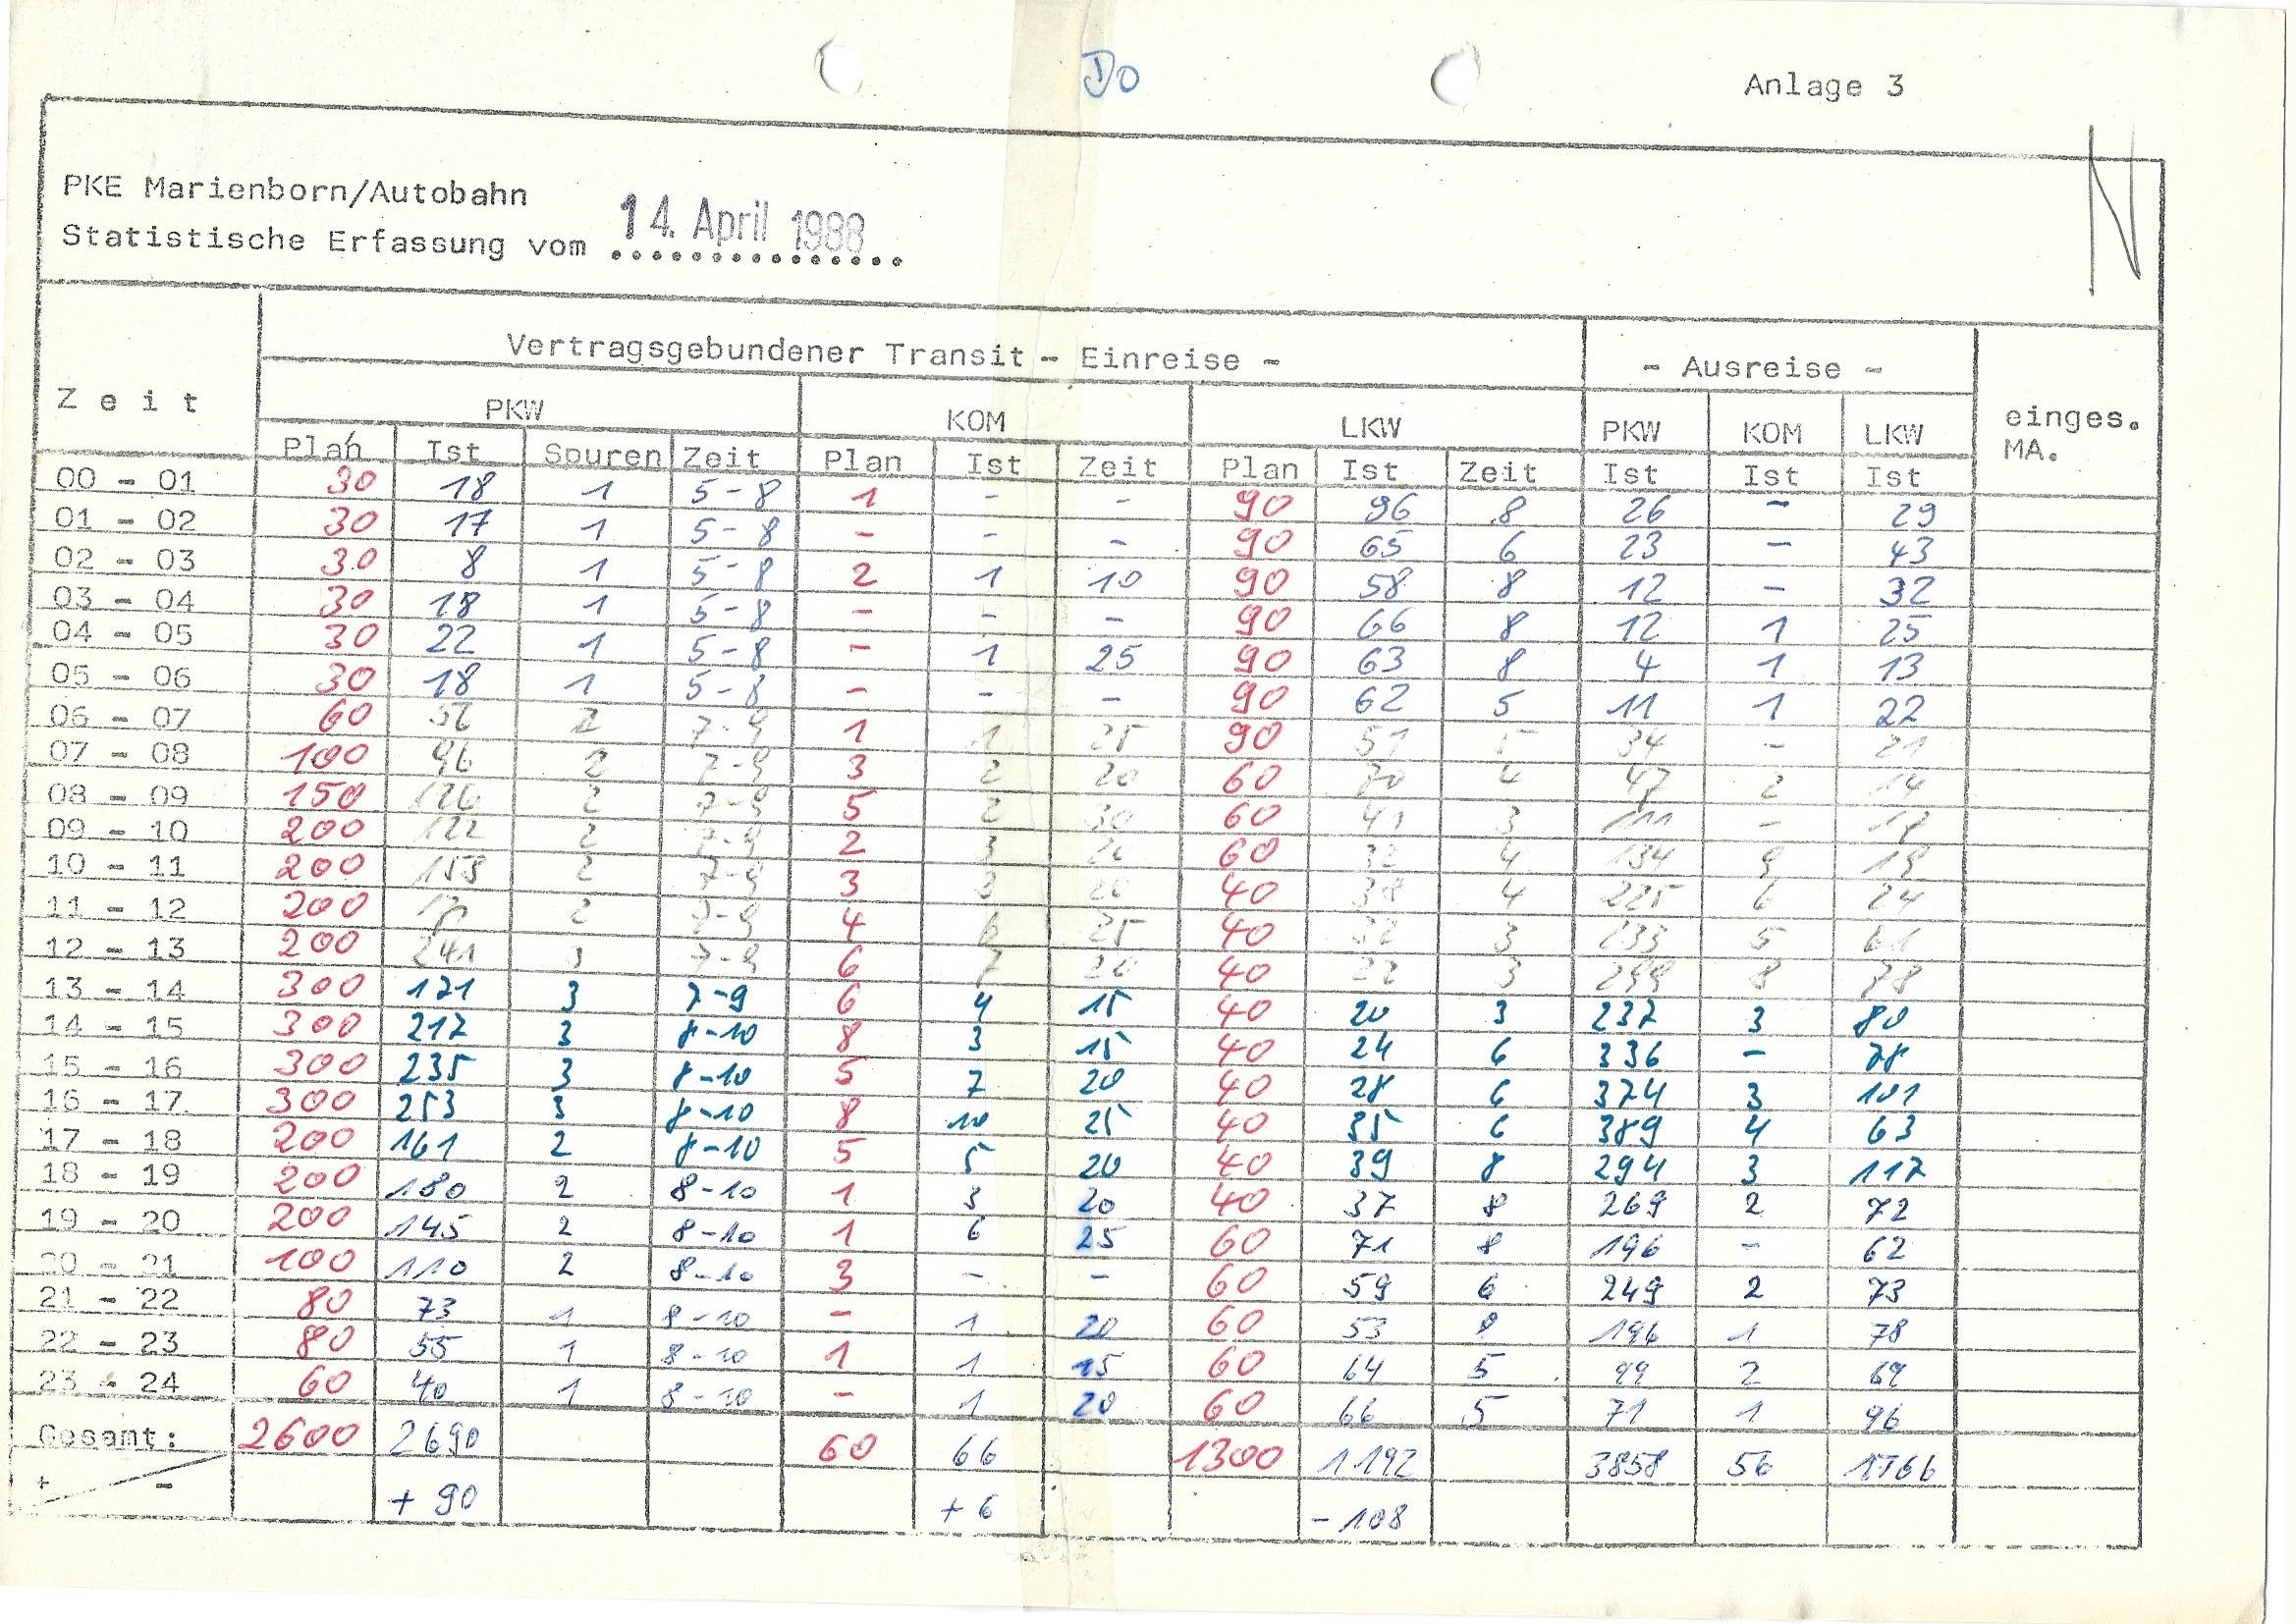 Do
Anlage 3
PKE Marienborn/Autobahn
Statistische Erfassung vom 14. April 1988
N
Vertragsgebundener Transit - Einreise - - Ausreise -
Zeit PKW KOM LKW PKW KOM LKW einges. MA.
Plan Ist Spuren Zeit Plan Ist Zeit Plan Ist Zeit Ist Ist Ist
00 - 01 30 18 1 5-8 1 - - 90 96 8 26 - 29
01 - 02 30 17 1 5-8 - - - 90 65 6 23 - 43
02 - 03 30 8 1 5-8 2 1 10 90 58 8 12 - 32
03 - 04 30 18 1 5-8 - - - 90 66 8 12 1 25
04 - 05 30 22 1 5-8 - 1 25 90 63 8 4 1 13
05 - 06 30 18 1 5-8 - - - 90 62 5 11 1 22
06 - 07 60 2 7-9 1 1 25 90 51 5 34 - 21
07 - 08 100 96 2 7-9 3 2 20 60 4 47 2 14
08 - 09 150 126 2 7-9 5 2 30 60 41 3 111 - 17
09 - 10 200 122 2 7-9 2 3 20 60 32 4 134 9 19
10 - 11 200 153 2 7-9 3 20 40 38 4 225 6 24
11 - 12 200 2 7-9 4 6 25 40 32 3 233 5
12 - 13 200 241 3 7-9 6 7 20 40 22 3 299 8 78
13 - 14 300 171 3 7-9 6 4 15 40 20 3 237 3 80
14 - 15 300 217 3 8-10 8 3 15 40 24 6 336 - 78
15 - 16 300 235 3 8-10 5 7 20 40 28 6 374 3 101
16 - 17 300 253 3 8-10 8 10 25 40 35 6 389 4 63
17 - 18 200 161 2 8-10 5 5 20 40 39 8 294 3 117
18 - 19 200 180 2 8-10 1 3 20 40 37 8 269 2 72
19 - 20 200 145 2 8-10 1 6 25 60 71 8 196 - 62
20 - 21 100 110 2 8-10 3 - - 60 59 6 249 2 73
21 - 22 80 73 1 8-10 - 1 20 60 53 8 196 1 78
22 - 23 80 55 1 8-10 1 1 15 60 64 5 99 2 69
23 - 24 60 40 1 8-10 - 1 20 60 66 5 71 1 96
Gesamt: 2600 2690 60 66 1300 1192 3858 56
+ - + 90 + 6 - 108